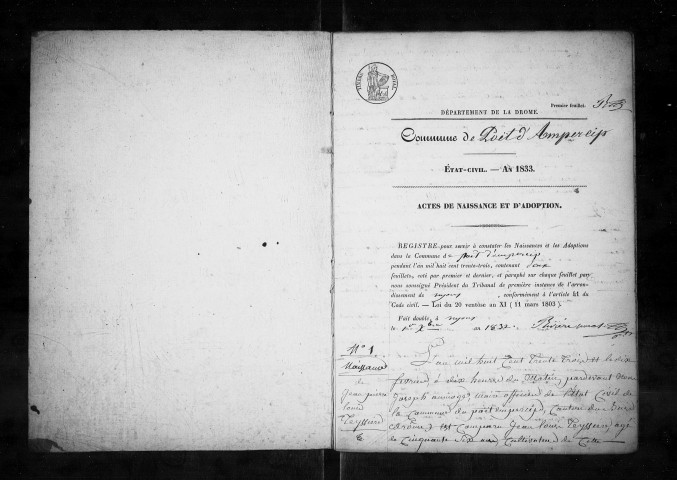 TIMBRE ROYAL
Premier feuillet.
DÉPARTEMENT DE LA DROME.
Commune de Poët d'Ampercip
ÉTAT-CIVIL. — AN 1833.
ACTES DE NAISSANCE ET D'ADOPTION.
REGISTRE pour servir à constater les Naissances et les Adoptions
dans la Commune d poët d'empercip
pendant l'an mil huit cent trente-trois, contenant six
feuillets, coté par premier et dernier, et paraphé sur chaque feuillet par
nous soussigné Président du Tribunal de première instance de l'arron-
dissement de nyons, conformément à l'article 41 du
Code civil. — Loi du 20 ventose an XI (11 mars 1803).
Fait double à nyons
le 1er Xbre an 1832.
N° 1
Naissance
de
Jean pierre
Louis
Teyssier
L'an mil huit Cent trente trois et le dix
fevrier à dix heures du Matin, pardevant nous
Joseph Maire officier de l'État Civil de
la Commune du poët empercip, Canton du Buis
(Drôme) est Comparu Jean Louis Teyssier agé
de Cinquante six ans Cultivateur de Cette